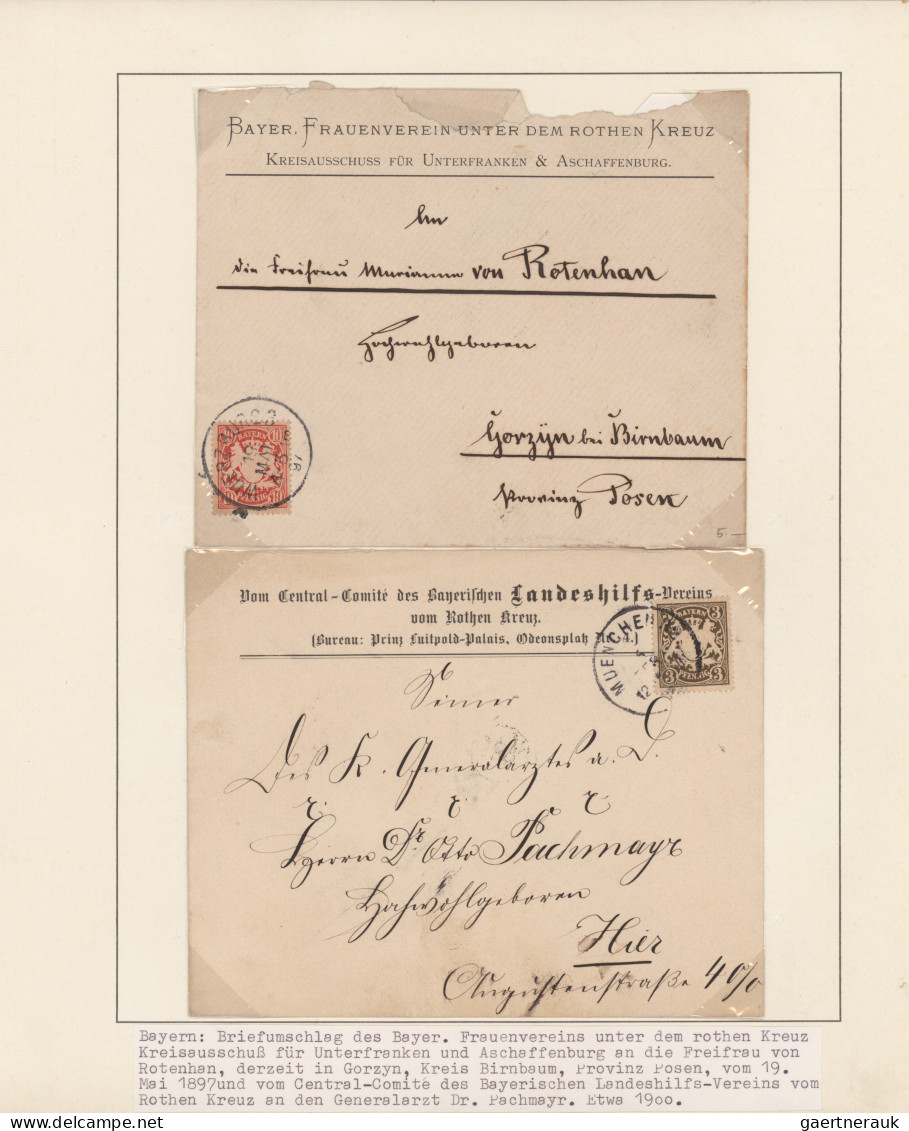 BAYER. FRAUENVEREIN UNTER DEM ROTHEN KREUZ
KREISAUSSCHUSS FÜR UNTERFRANKEN & ASCHAFFENBURG.
An
die Freifrau Marianne von Rotenhan
Hochwohlgeboren
Gorzyn bei Birnbaum
Provinz Posen
BAYERN
PFENNIG
5.-
Vom Central-Comité des Bayerischen Landeshilfs-Vereins
vom Rothen Kreuz.
(Bureau: Prinz Luitpold-Palais, Odeonsplatz No. 4.)
MUENCHEN
BAYERN
3 3
3 PFENNIG 3
Seiner
Des K. Generalarztes a. D.
Herrn Dr. Otto Pachmayr
Hochwohlgeboren
Hier
Augustenstraße 4 0/0
Bayern: Briefumschlag des Bayer. Frauenvereins unter dem rothen Kreuz
Kreisausschuß für Unterfranken und Aschaffenburg an die Freifrau von
Rotenhan, derzeit in Gorzyn, Kreis Birnbaum, Provinz Posen, vom 19.
Mai 1897und vom Central-Comité des Bayerischen Landeshilfs-Vereins vom
Rothen Kreuz an den Generalarzt Dr. Pachmayr. Etwa 19oo.
gaertnerauk @ delcampe.net